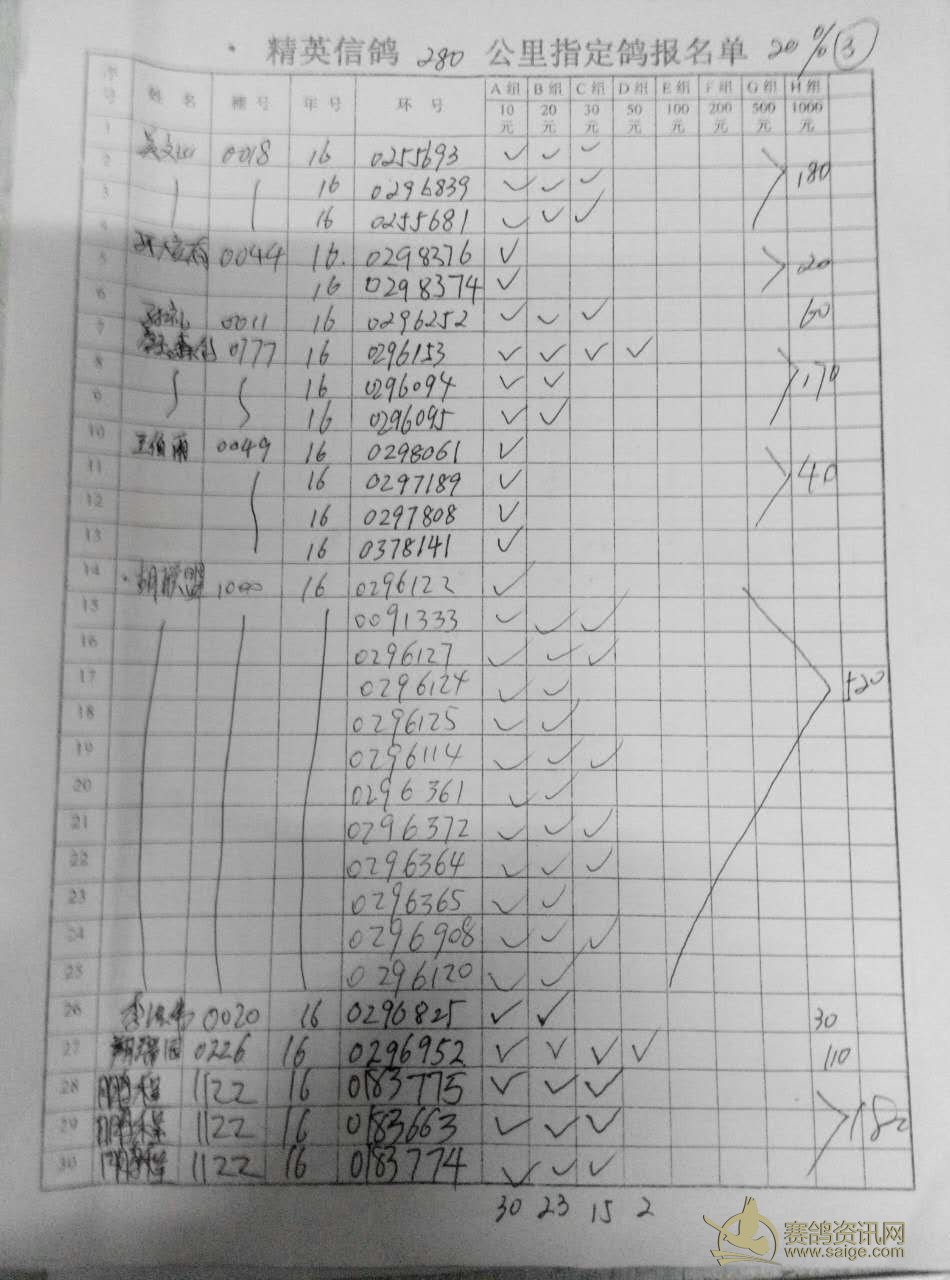 精英信鸽 280 公里指定鸽报名单 20% ③
序号 姓名 棚号 年号 环号 A组 10元 B组 20元 C组 30元 D组 50元 E组 100元 F组 200元 G组 500元 H组 1000元
1 0018 16 0255693 ✓ ✓ ✓
2 16 0296839 ✓ ✓ ✓ 180
3 16 0255681 ✓ ✓ ✓
4 0044 16 0298376 ✓
5 16 0298374 ✓ 20
6 0011 16 0296252 ✓ ✓ ✓ 60
7 0177 16 0296153 ✓ ✓ ✓ ✓
8 16 0296094 ✓ ✓ 170
9 16 0296095 ✓ ✓
10 0049 16 0298061 ✓
11 16 0297189 ✓ 40
12 16 0297808 ✓
13 16 0378141 ✓
14 胡联盟 1000 16 0296122 ✓
15 0091333 ✓ ✓ ✓
16 0296127 ✓ ✓ ✓
17 0296124 ✓ ✓
18 0296125 ✓ ✓
19 0296114 ✓ ✓ ✓
20 0296361 ✓ ✓
21 0296372 ✓ ✓ ✓
22 0296364 ✓ ✓ ✓
23 0296365 ✓ ✓
24 0296908 ✓ ✓ ✓
25 0296120 ✓ ✓
26 0020 16 0296825 ✓ ✓ 30
27 0226 16 0296952 ✓ ✓ ✓ ✓ 110
28 1122 16 0183775 ✓ ✓ ✓
29 1122 16 0183663 ✓ ✓ ✓ 180
30 1122 16 0183774 ✓ ✓ ✓
30 23 15 2
赛鸽资讯网
www.saige.com